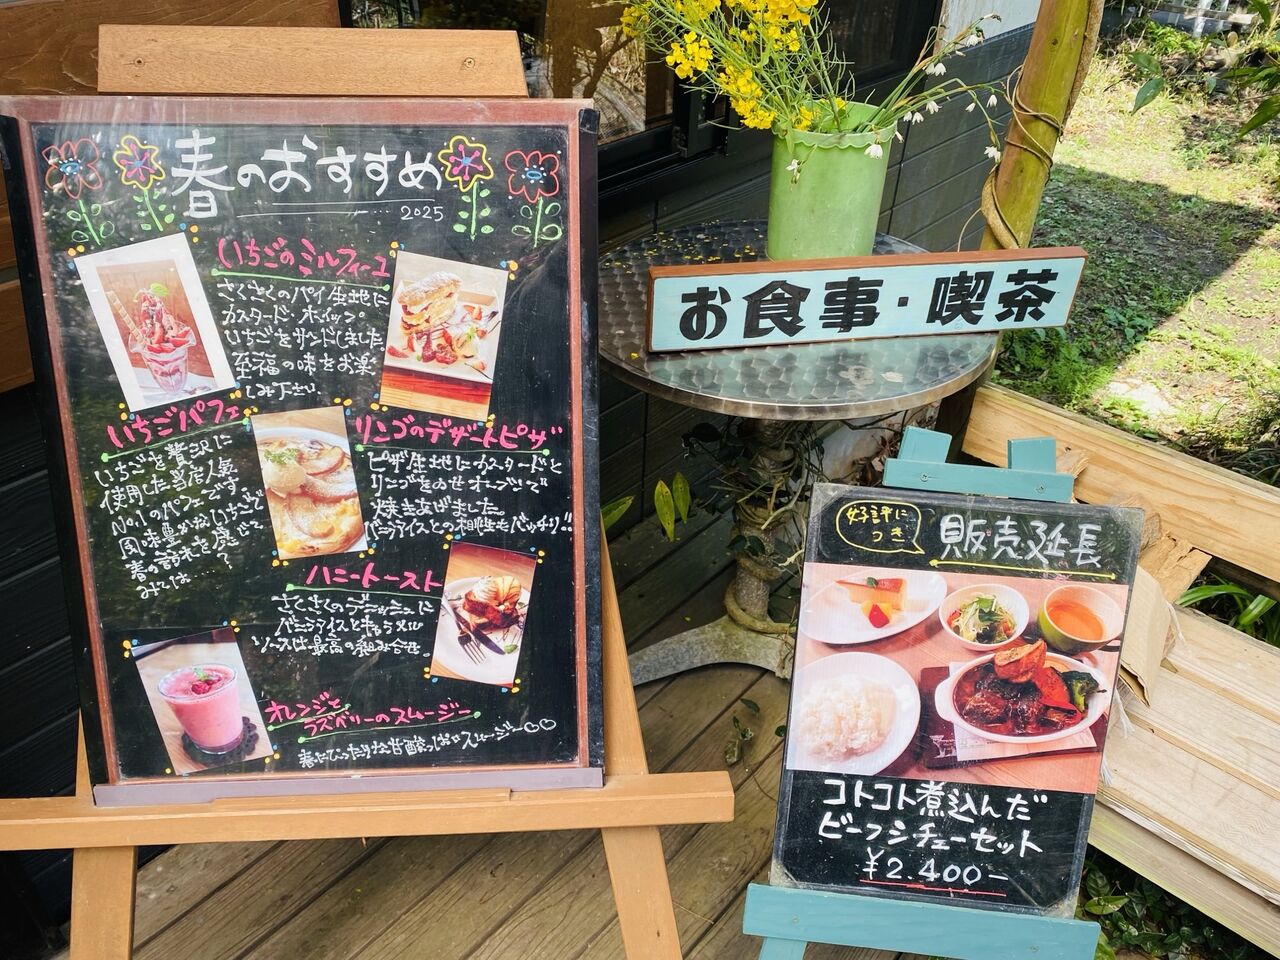 春のおすすめ
2025
いちごのミルフィーユ
さくさくのパイ生地に
カスタード・ホイップ。
いちごをサンドしました。
至福の味をお楽
しみ下さい。
いちごパフェ
いちごを贅沢に
使用した当店人気
No.1のパフェです。
風味豊かないちごで
春の訪れを感じて
みては…?
リンゴのデザートピザ
ピザ生地にカスタードと
リンゴをのせオーブンで
焼きあげました。
バニラアイスとの相性もバッチリ!!
ハニートースト
さくさくのデニッシュに
バニラアイスとキャラメル
ソースは最高の組み合せ。
オレンジと
ラズベリーのスムージー
春にぴったりな甘酸っぱいスムージー♡♡
お食事・喫茶
好評に
つき
販売延長
コトコト煮込んだ
ビーフシチューセット
¥2.400-